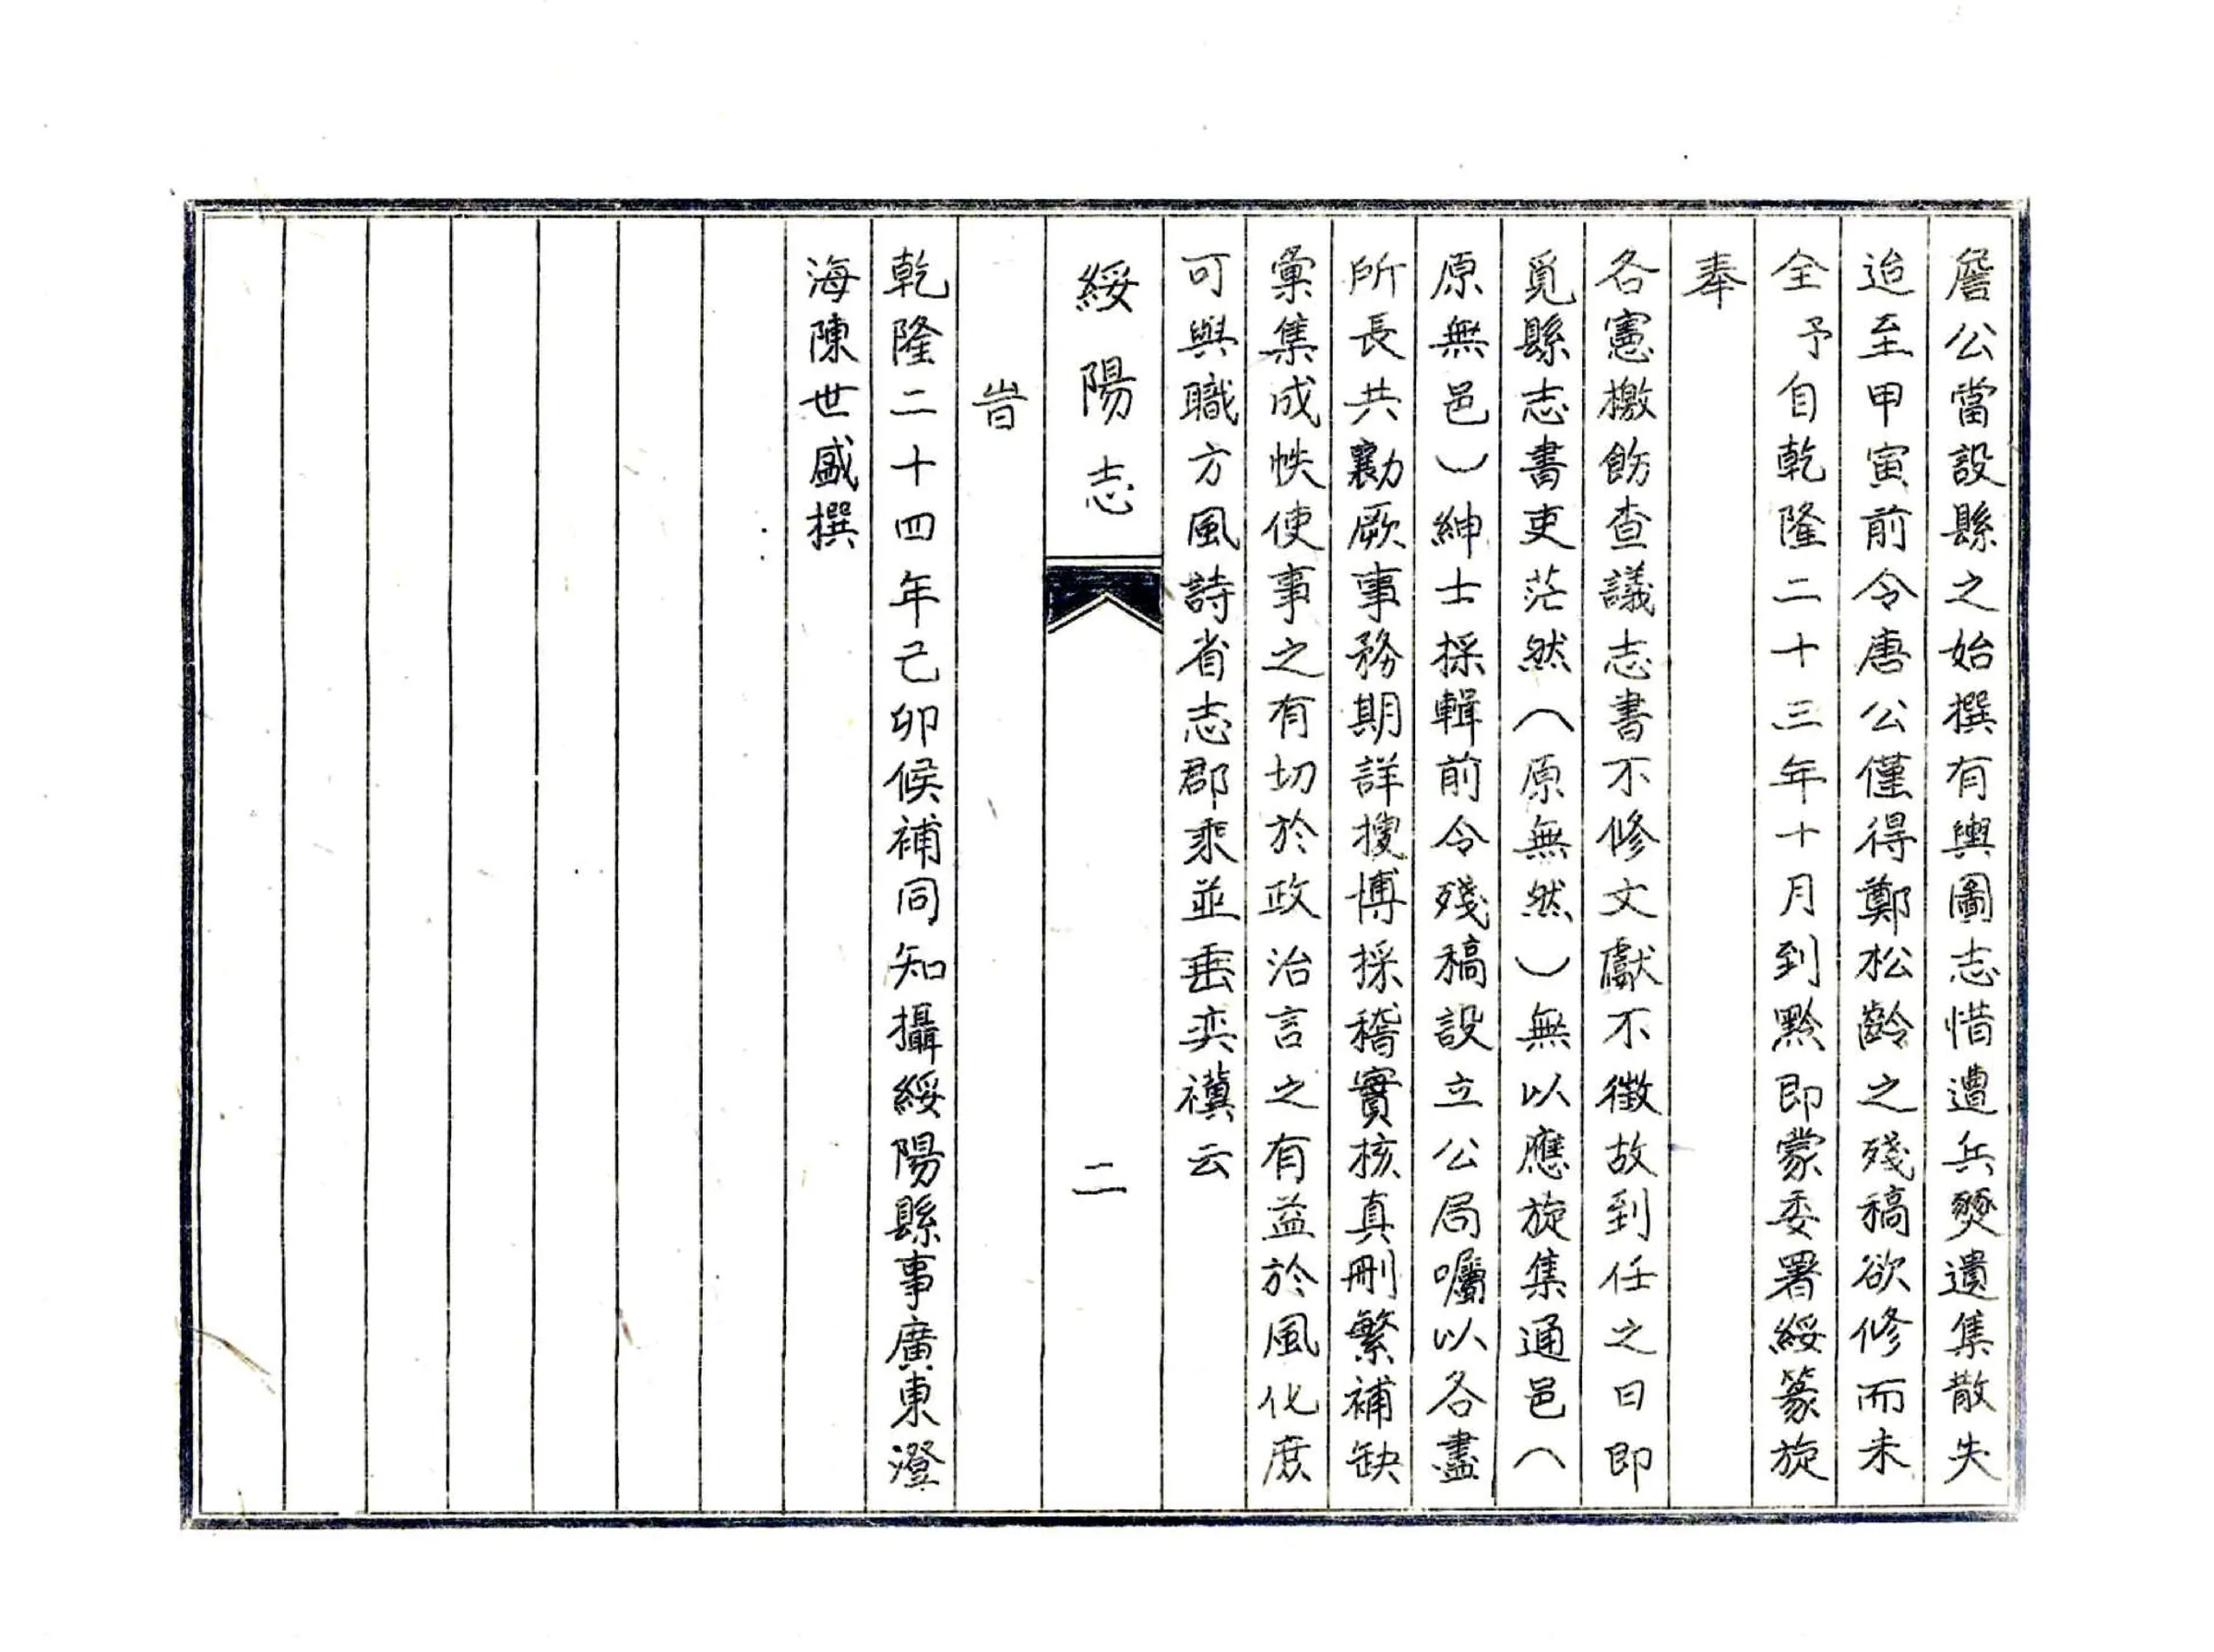 詹公當設縣之始撰有輿圖志惜遭兵燹遺集散失
迨至甲寅前令唐公僅得鄭松齡之殘稿欲修而未
全予自乾隆二十三年十月到黔即蒙委署綏篆旋
奉
各憲檄飭查議志書不修文獻不徵故到任之日即
覓縣志書吏茫然(原無然)無以應旋集通邑(
原無邑)紳士採輯前令殘稿設立公局囑以各盡
所長共勷厥事務期詳搜博採稽實核真刪繁補缺
彙集成帙使事之有切於政治言之有益於風化庶
可與職方風詩省志郡乘並垂奕禩云
綏陽志 二
旹
乾隆二十四年己卯候補同知攝綏陽縣事廣東澄
海陳世盛撰